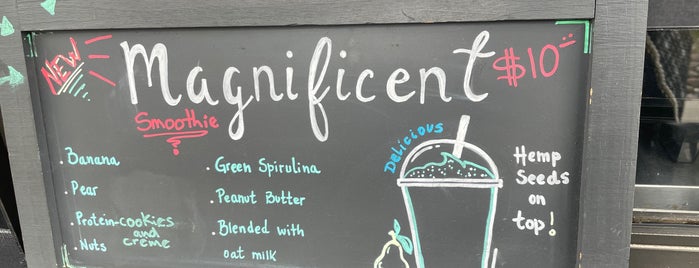 NEW
Magnificent
$10
Smoothie
?
. Banana
. Pear
. Protein-cookies
and
creme
. Nuts
. Green Spirulina
. Peanut Butter
. Blended with
oat milk
Delicious
Hemp
Seeds
on
top!